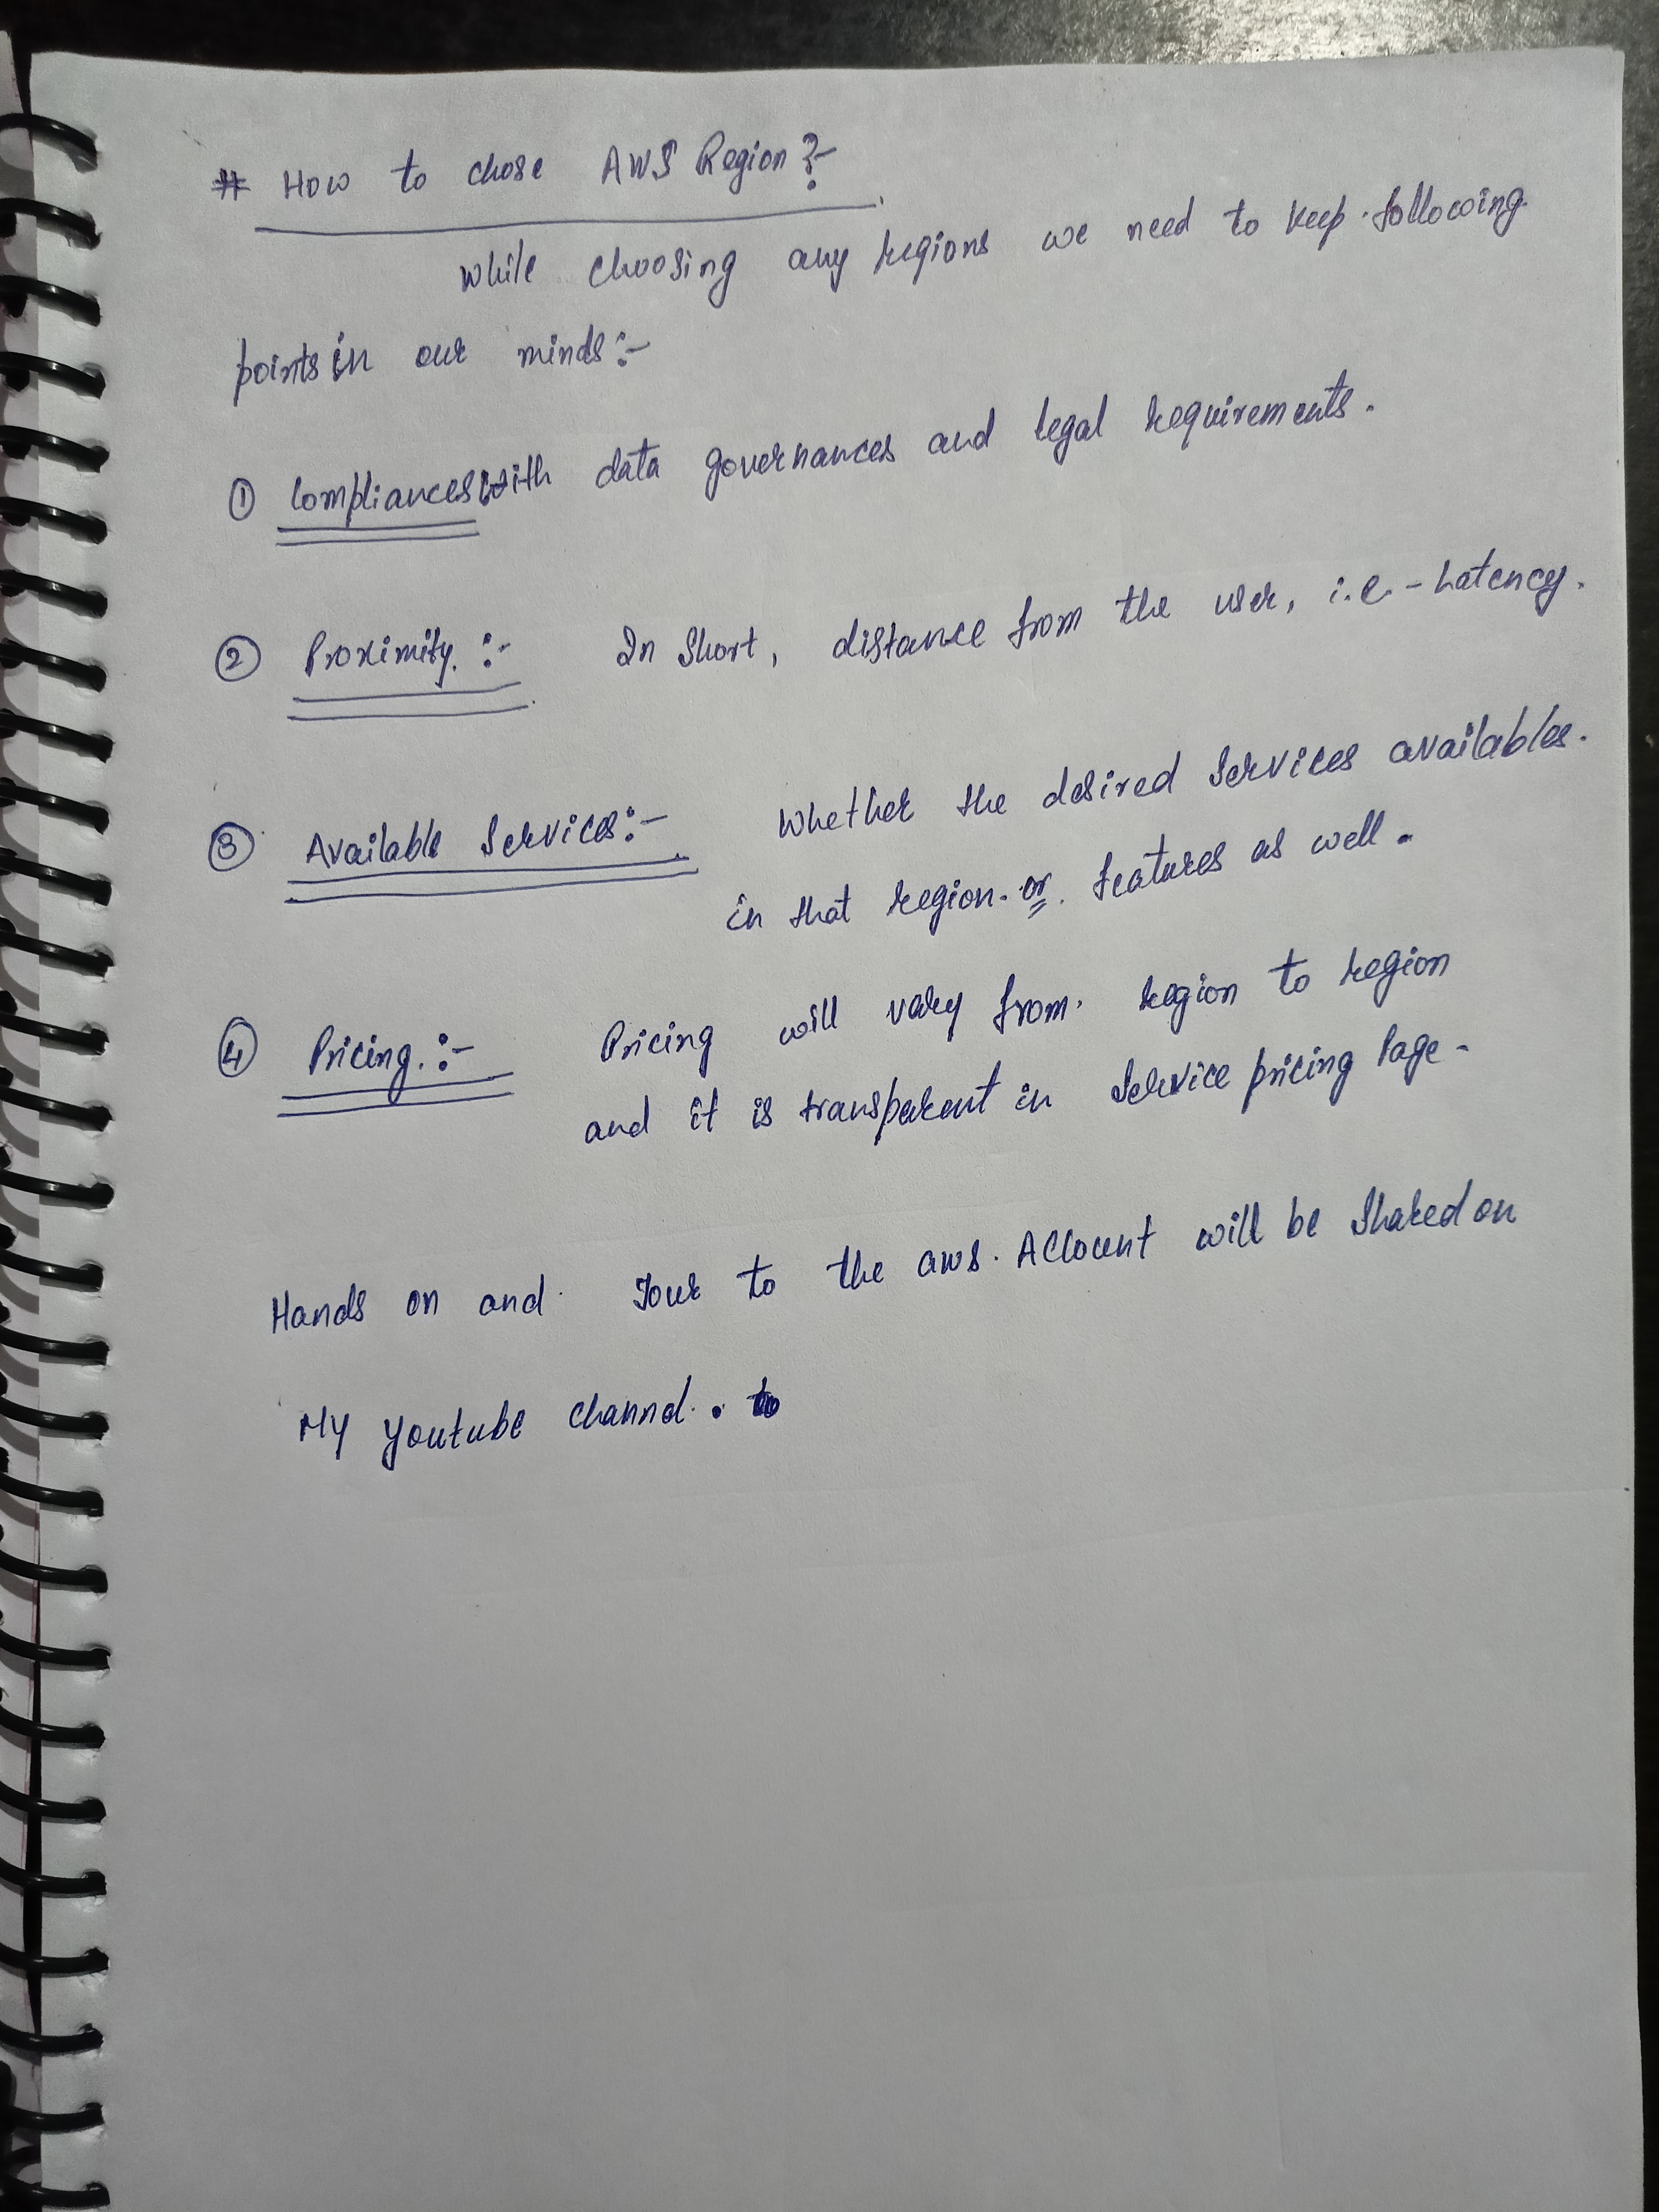 # How to chose AWS Region?-
while choosing any regions we need to keep following
points in our minds:-
① Compliances with data governances and legal requirements.
② Proximity :- In Short, distance from the user, i.e.- Latency.
③ Available Services:- Whether the desired services availables.
in that region. or features as well.
④ Pricing. :- Pricing will vary from. region to region
and it is transparent in Service pricing Page-
Hands on and. Tour to the aws. Account will be Shared on
My Youtube channel.